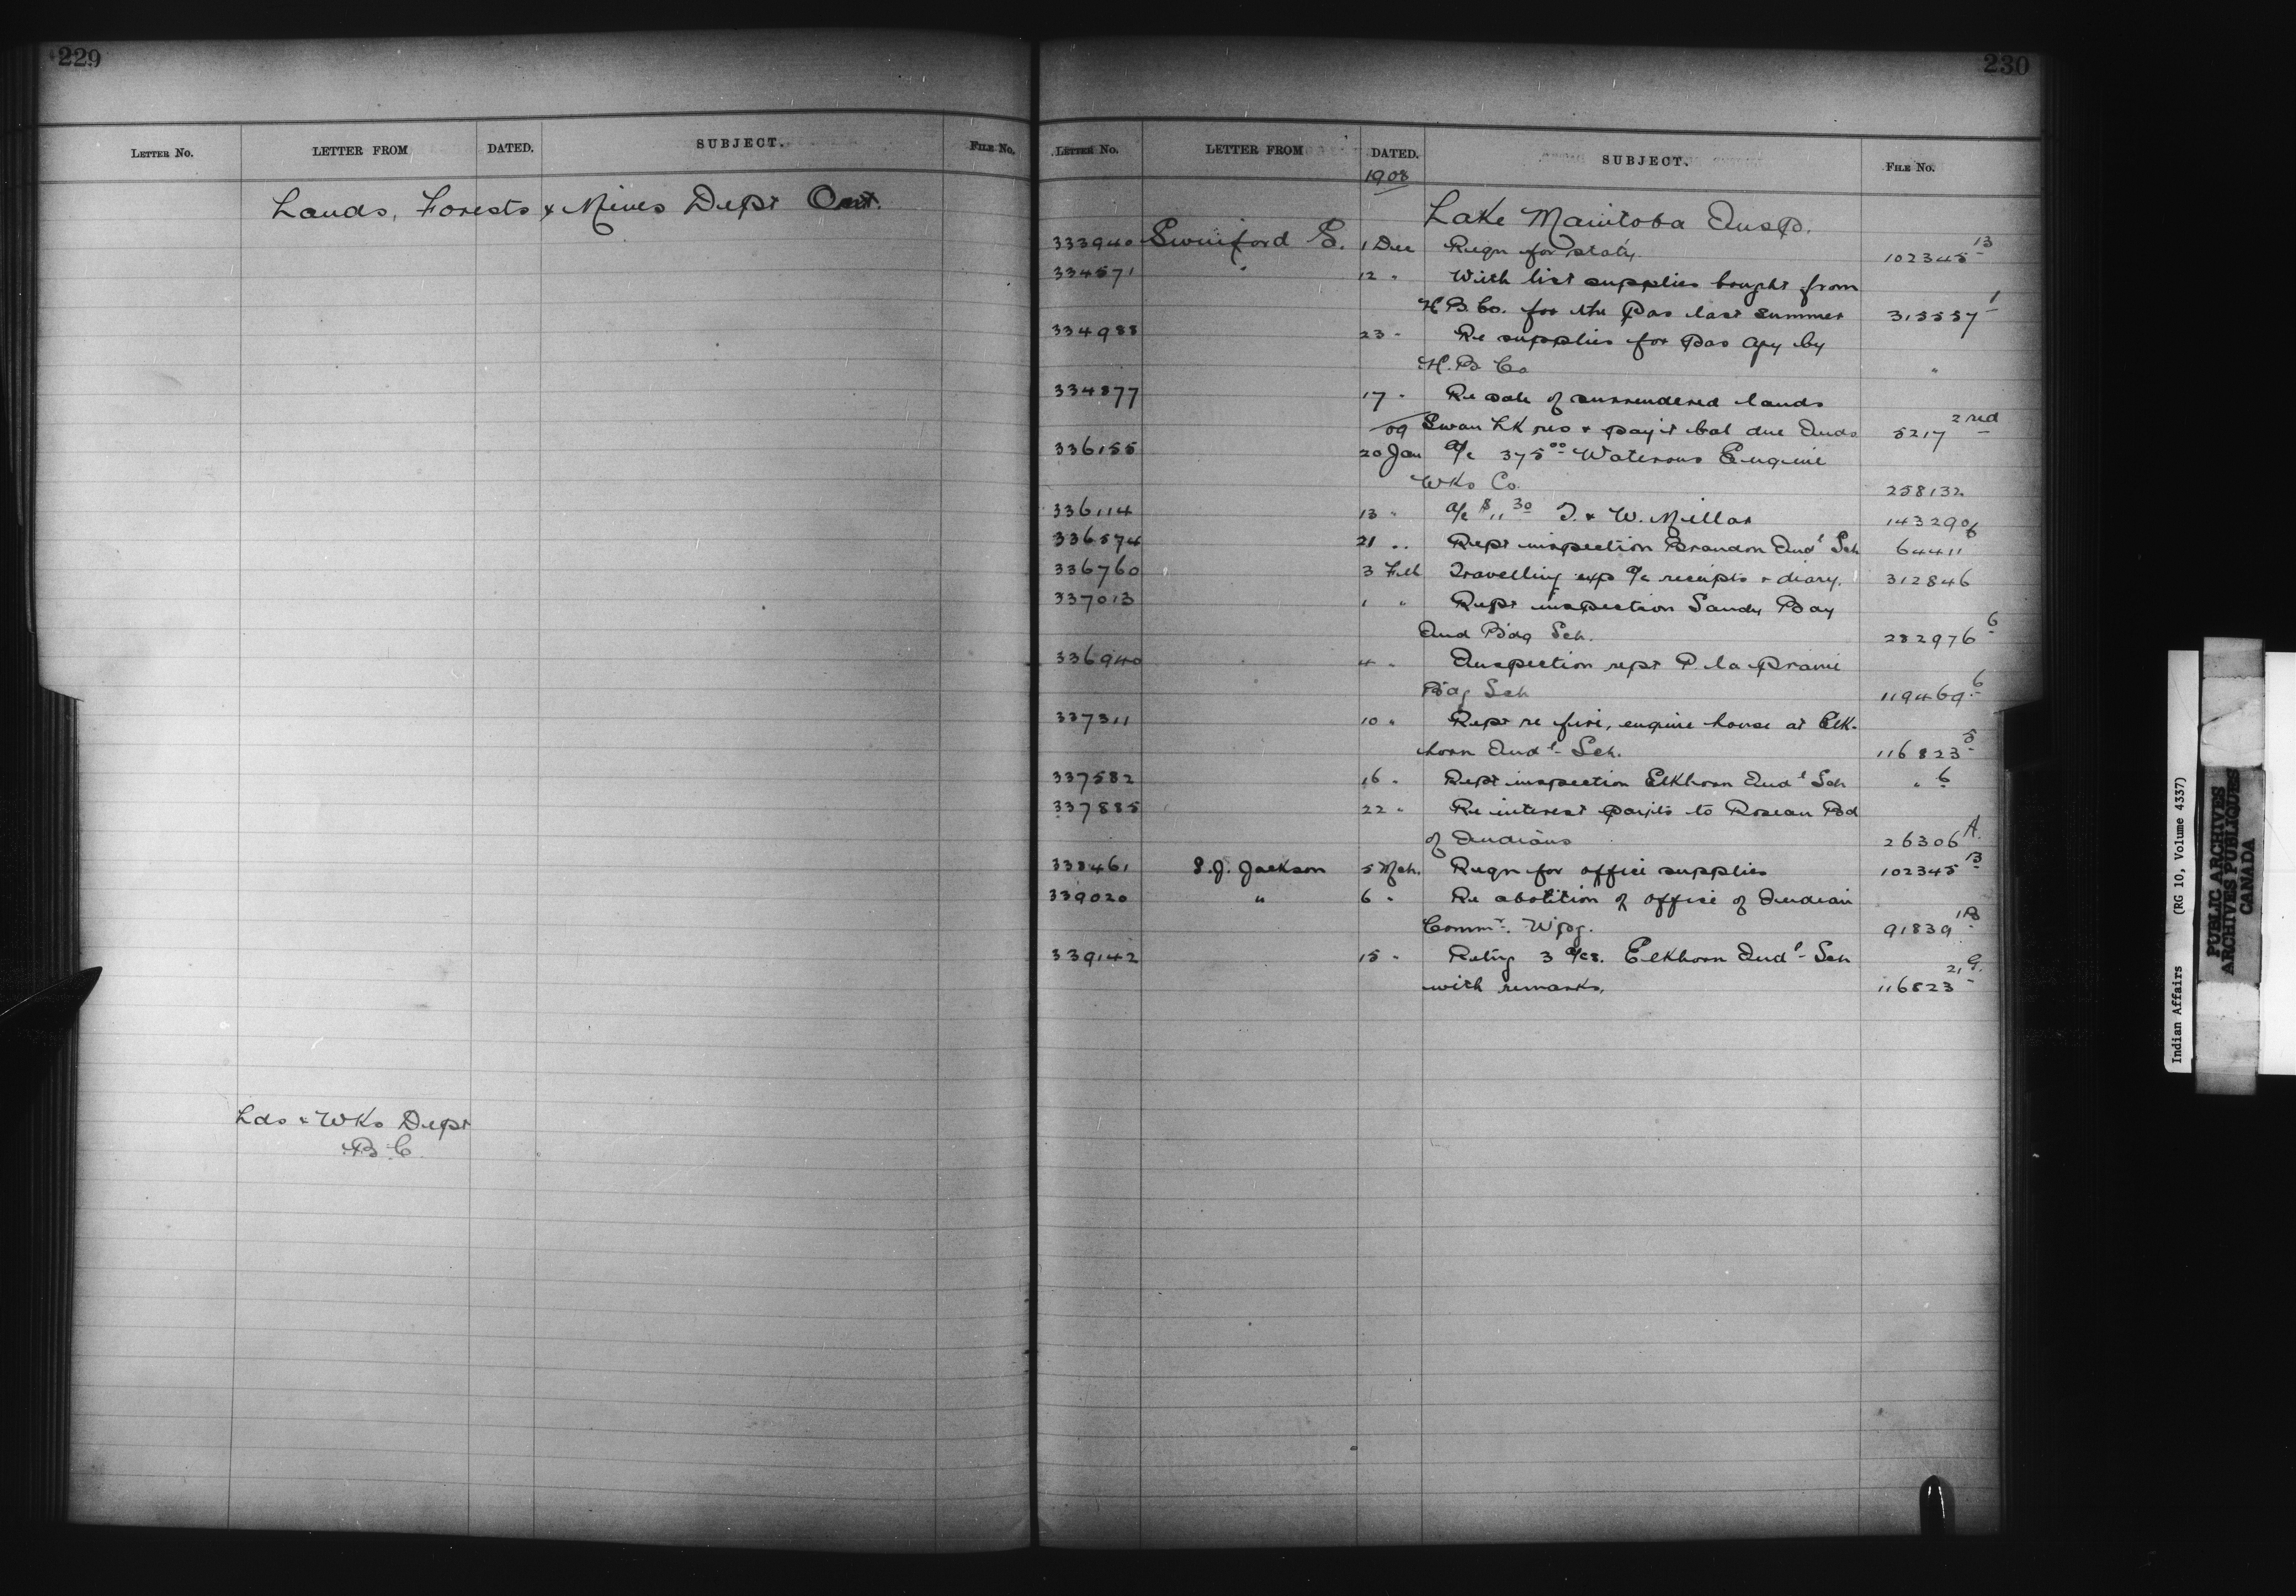 229
LETTER No. LETTER FROM DATED. SUBJECT. FILE No.
Lands, Forests & Mines Dept Ont.
Lds & Wks Dept
B.C.
230
LETTER No. LETTER FROM DATED. SUBJECT. FILE No.
1908
Lake Manitoba Insp.
333940 Swinford S. 1 Dec Reqn for staty. 102345 13
334571 " 12 " With list supplies bought from
H B. Co. for the Pas last summer 313557 1
334988 23 " Re supplies for Pas Agy by
H. B. Co "
334877 17 " Re sale of surrendered lands
09 Swan Lk res & pay't bal due Inds 5217 2 red
336155 20 Jan a/c 375 00 Waterous Engine
Wks Co. 258132
336114 13 " a/c $11 30 T. & W. Millar 143290f
336574 21 " Rept inspection Brandon Ind l Sch 64411
336760 3 Feb Travelling exp a/c receipts & diary. 312846
337013 1 " Rept inspection Sandy Bay
Ind Bdg Sch. 282976 6
336940 4 " Inspection rept P. la Prairie
Bdg Sch 119469 6
337311 10 " Rept re fire, engine house at Elk-
horn Ind l Sch. 116823 5
337582 16 " Rept inspection Elkhorn Ind l Sch " 6
337885 22 " Re interest payts to Roseau Bd
of Indians 26306 A.
338461 S.J. Jackson 5 Mch. Reqn for office supplies 102345 13
339020 " 6 " Re abolition of office of Indian
Commr. Wpg. 91839 1B
339142 15 " Retng 3 a/cs. Elkhorn Ind l Sch
with remarks. 116823 21 G.
Indian Affairs (RG 10, Volume 4337)
PUBLIC ARCHIVES
ARCHIVES PUBLIQUES
CANADA